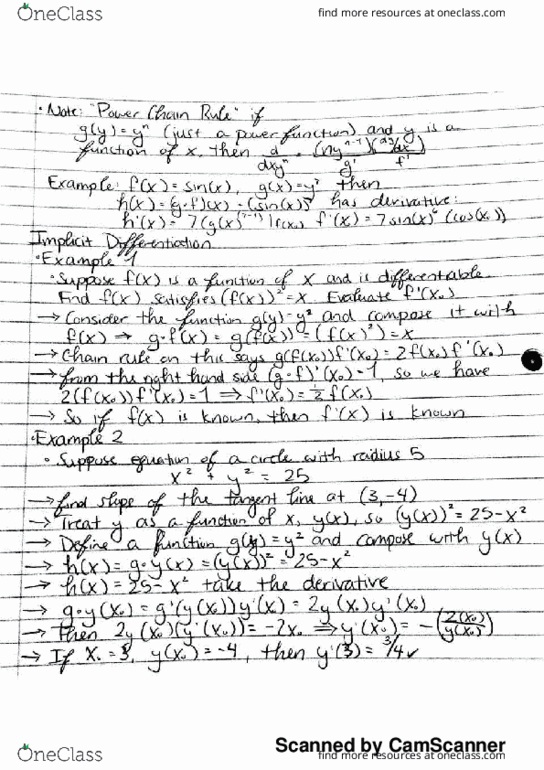 OneClass
find more resources at oneclass.com
• Note: "Power Chain Rule" if
g(y) = yⁿ (just a power function) and y is a
function of x, then d/dxyⁿ = (nyⁿ⁻¹)(dy/dx)
g' f'
Example: f(x) = sin(x), g(x) = y⁷ then
h(x) = (g∘f)(x) = (sin(x))⁷ has derivative:
h'(x) = 7(g(x)⁷⁻¹)|f(x₀) f'(x) = 7sin(x)⁶(cos(x₀))
Implicit Differentiation
• Example 1
• Suppose f(x) is a function of x and is differentiable.
Find f(x) satisfies (f(x))² = x. Evaluate f'(x₀)
→ Consider the function g(y) = y² and compose it with
f(x) → g∘f(x) = g(f(x)) = (f(x)²) = x
→ Chain rule on this says g(f(x₀))f'(x₀) = 2f(x₀)f'(x₀)
→ from the right hand side (g∘f)'(x₀) = 1, so we have
2(f(x₀))f'(x₀) = 1 ⟹ f'(x₀) = ½f(x₀)
→ So if f(x) is known, then f'(x) is known
• Example 2
• Suppose equation of a circle with radius 5
x² + y² = 25
→ find slope of the tangent line at (3,-4)
→ Treat y as a function of x, y(x), so (y(x))² = 25 - x²
→ Define a function g(y) = y² and compose with y(x)
→ h(x) = g∘y(x) = (y(x))² = 25 - x²
→ h(x) = 25 - x² take the derivative
→ g∘y(x₀) = g'(y(x₀))y'(x₀) = 2y(x₀)y'(x₀)
→ Then 2y(x₀)(y'(x₀)) = -2x₀ ⟹ y'(x₀) = -(2(x₀)/y(x₀))
→ If x₀ = 3, y(x₀) = -4, then y'(3) = 3/4 ✓
Scanned by CamScanner
OneClass
find more resources at oneclass.com